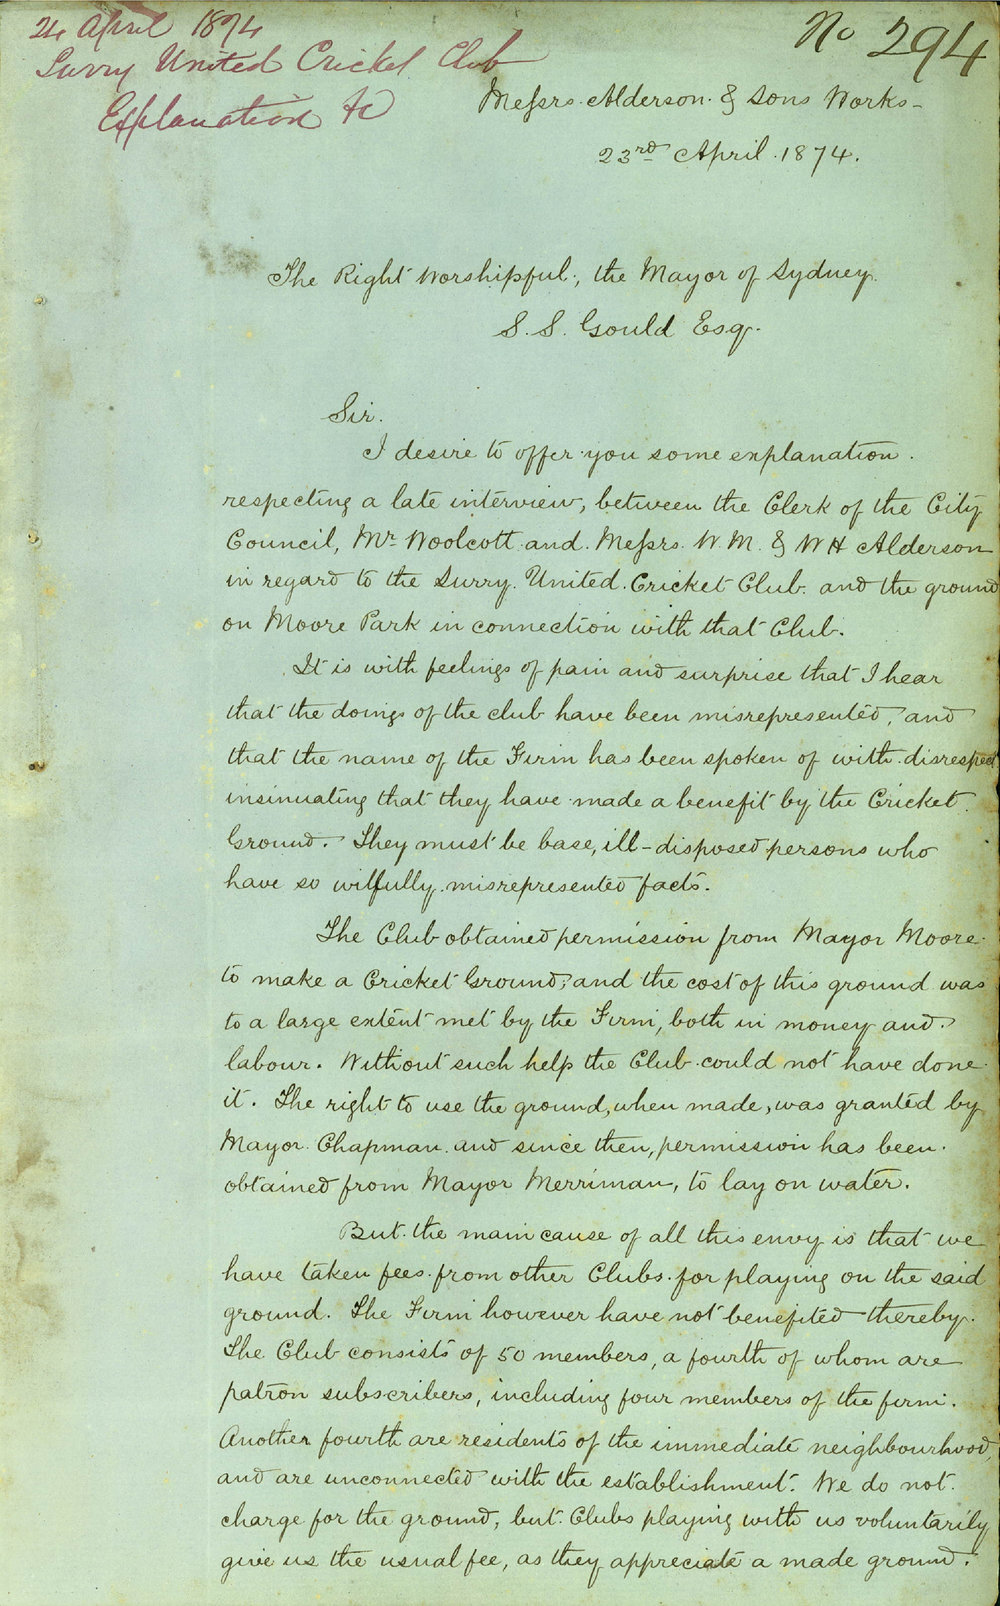 24 April 1874
Surry United Cricket Club
Explanation &c
No 294
Messrs. Alderson. & Sons Works -
23rd April. 1874.
The Right Worshipful, the Mayor of Sydney.
S. S. Gould Esq.
Sir.
I desire to offer you some explanation.
respecting a late interview, between the Clerk of the City
Council, Mr Woolcott and Messrs. W. M. & W H Alderson
in regard to the Surry. United. Cricket Club. and the ground
on Moore Park in connection with that Club.
It is with feelings of pain and surprise that I hear
that the doings of the club have been misrepresented, and
that the name of the Firm has been spoken of with disrespect
insinuating that they have made a benefit by the Cricket
Ground. They must be base, ill-disposed persons who
have so wilfully misrepresented facts.
The Club obtained permission from Mayor Moore
to make a Cricket Ground; and the cost of this ground was
to a large extent met by the Firm, both in money and
labour. Without such help the Club could not have done
it. The right to use the ground, when made, was granted by
Mayor Chapman. and since then, permission has been
obtained from Mayor Merriman, to lay on water.
But the main cause of all this envy is that we
have taken fees from other Clubs for playing on the said
ground. The Firm however have not benefited thereby.
The Club consists of 50 members, a fourth of whom are
patron subscribers, including four members of the firm.
Another fourth are residents of the immediate neighbourhood,
and are unconnected with the establishment. We do not
charge for the ground, but Clubs playing with us voluntarily
give us the usual fee, as they appreciate a made ground.